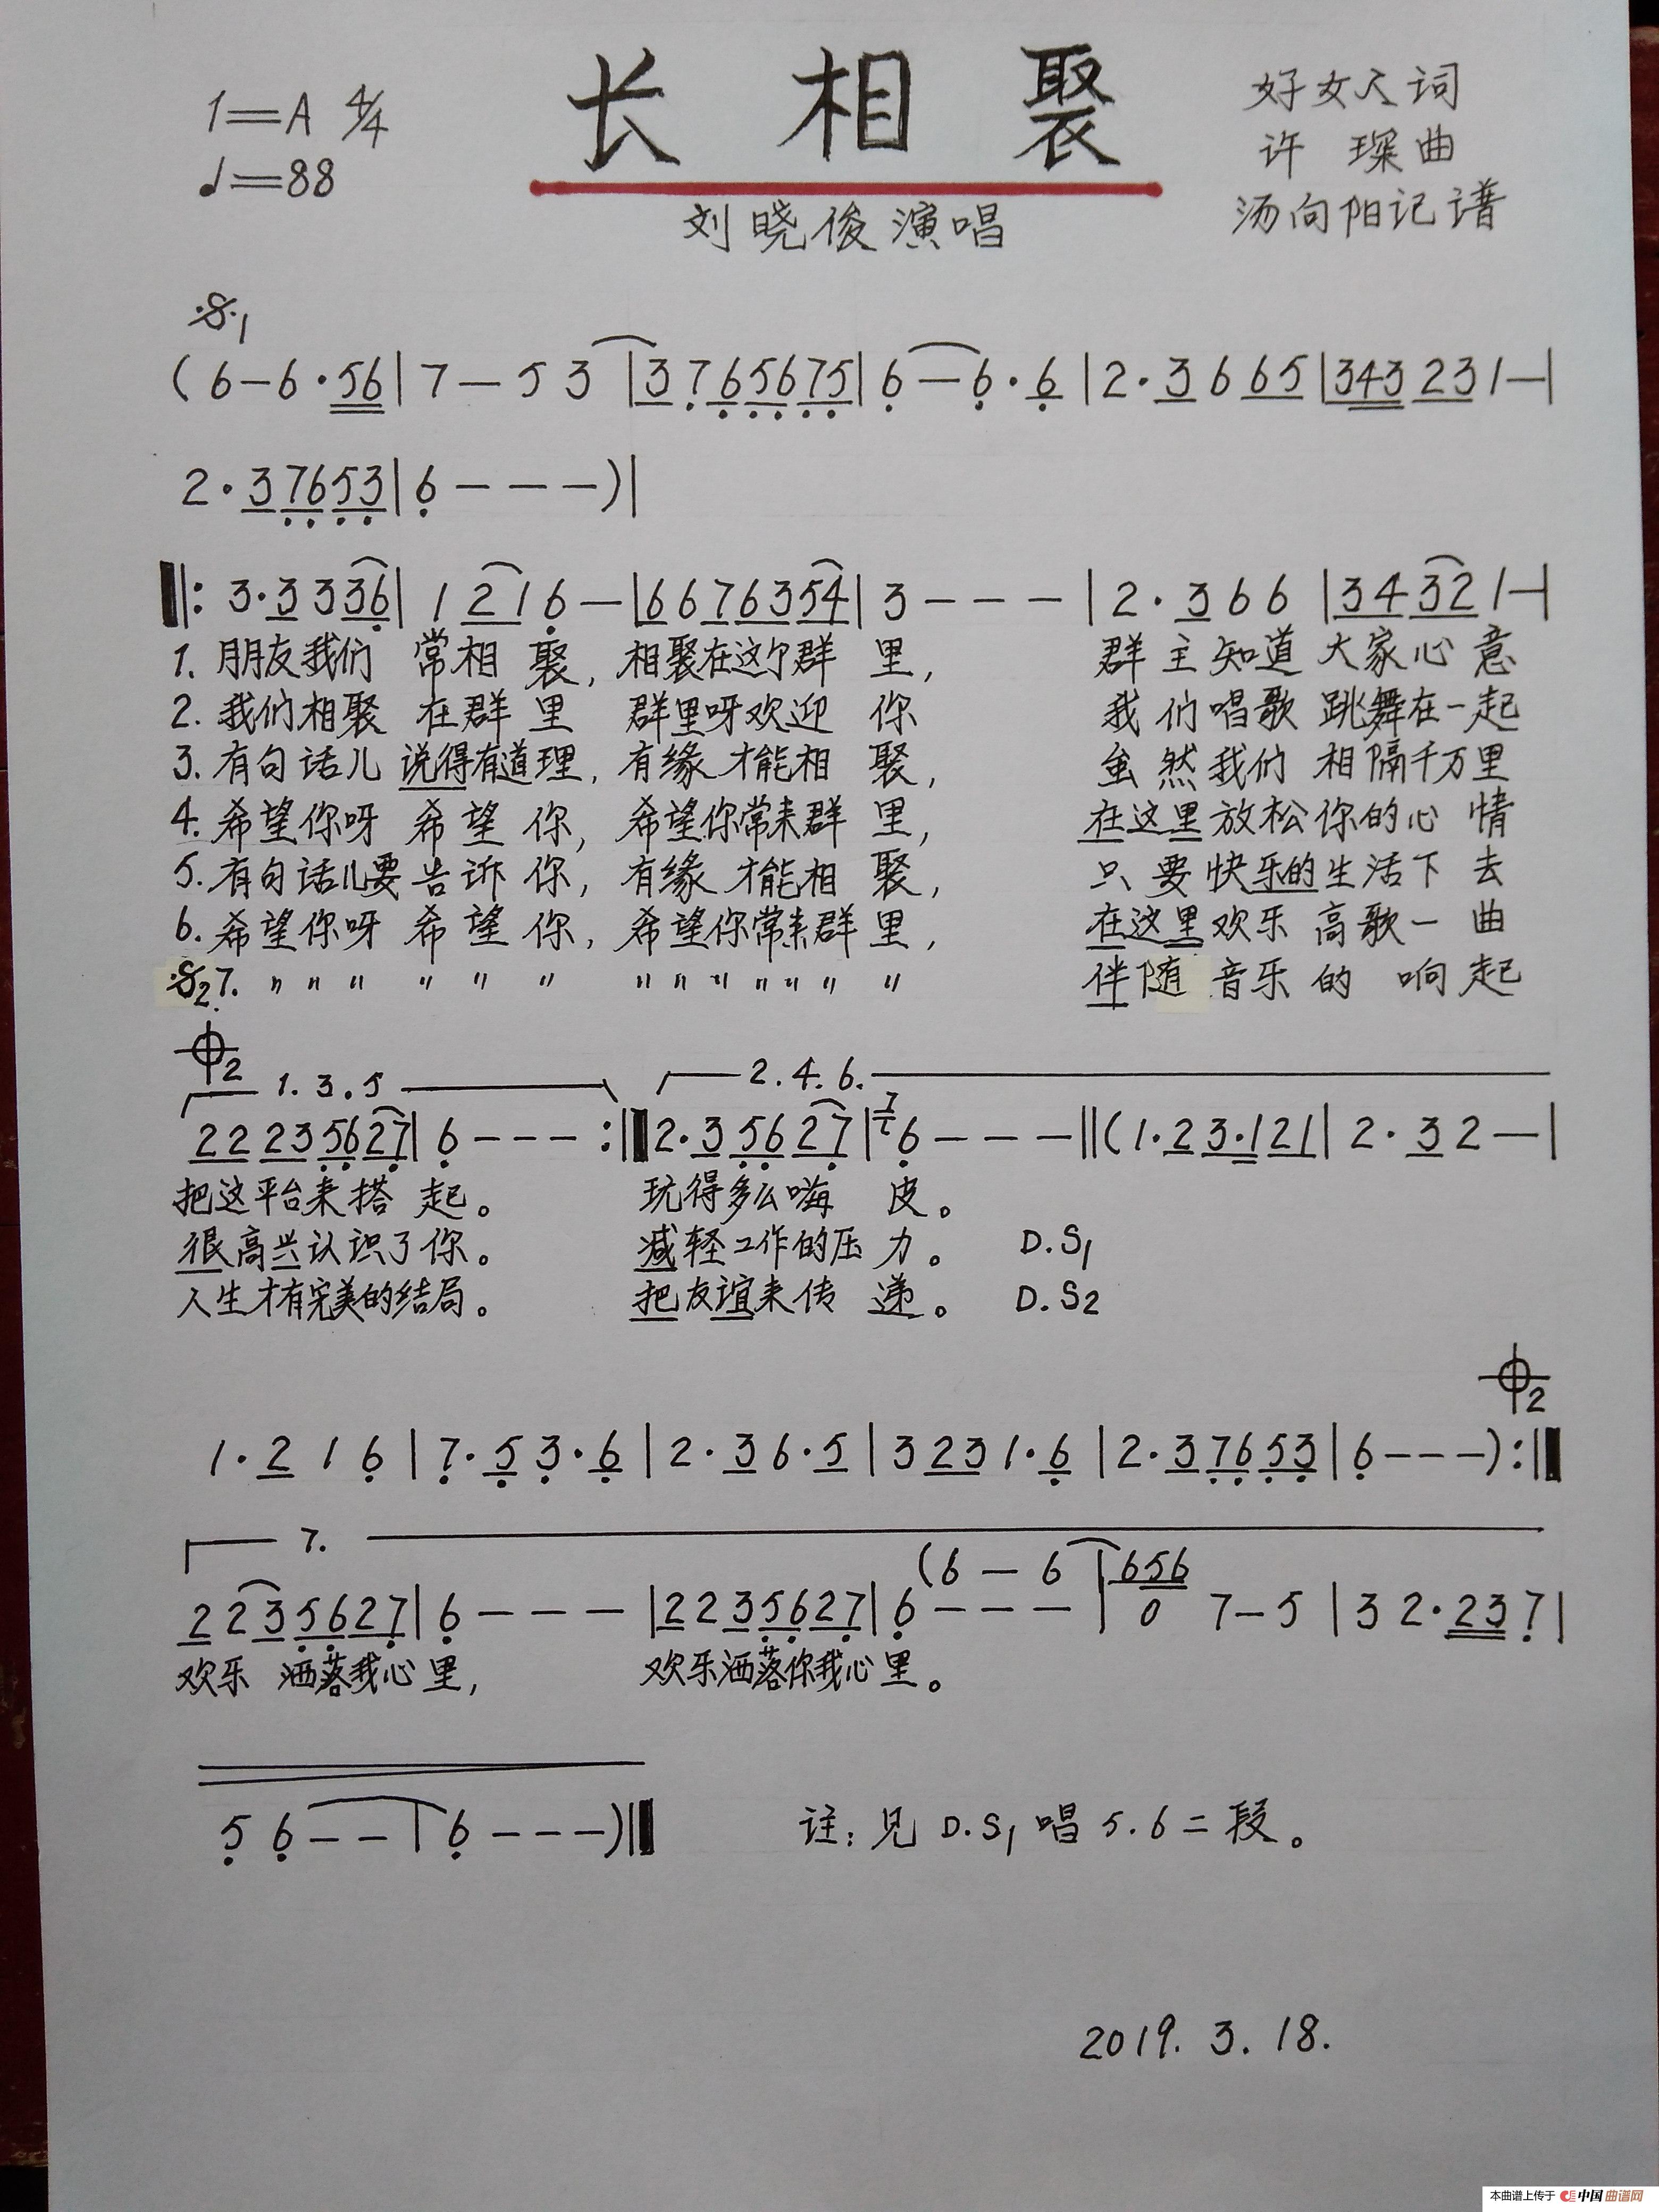 长相聚
1=A 4/4
♩=88
好女人词
许琛曲
汤向阳记谱
刘晓俊演唱
𝄋1
(6—6·56|7—5 3|3 7 6 5 6 7 5|6—6·6|2·3 6 6 5|3 4 3 2 3 1—|
2·3 7 6 5 3|6———)|
‖:3·3 3 3 6|1 2 1 6—|6 6 7 6 3 5 4|3———|2·3 6 6|3 4 3 2 1—|
1.朋友我们 常相聚,相聚在这个群里, 群主知道大家心意
2.我们相聚 在群里 群里呀欢迎你 我们唱歌跳舞在一起
3.有句话儿 说得有道理,有缘才能相聚, 虽然我们相隔千万里
4.希望你呀 希望你,希望你常来群里, 在这里放松你的心情
5.有句话儿要告诉你,有缘才能相聚, 只要快乐的生活下去
6.希望你呀 希望你,希望你常来群里, 在这里欢乐高歌一曲
𝄋2 7. 〃 〃 〃 〃 〃 〃 〃 〃 〃 〃 〃 〃 〃 伴随音乐的响起
𝄌2
1.3.5 2.4.6.
2 2 2 3 5 6 2 7|6———:‖2·3 5 6 2 7|7 6———‖(1·2 3·1 2 1|2·3 2—|
把这平台来搭起。 玩得多么嗨皮。
很高兴认识了你。 减轻工作的压力。 D.S1
人生才有完美的结局。 把友谊来传递。 D.S2
𝄌2
1·2 1 6|7·5 3·6|2·3 6·5|3 2 3 1·6|2·3 7 6 5 3|6———):‖
7.
(6—6|6 5 6
2 2 3 5 6 2 7|6———|2 2 3 5 6 2 7|6———|0 7—5|3 2·2 3 7|
欢乐洒落我心里, 欢乐洒落你我心里。
5 6——|6———)‖
注:见D.S1唱5.6二段。
2019.3.18.
本曲谱上传于 中国曲谱网